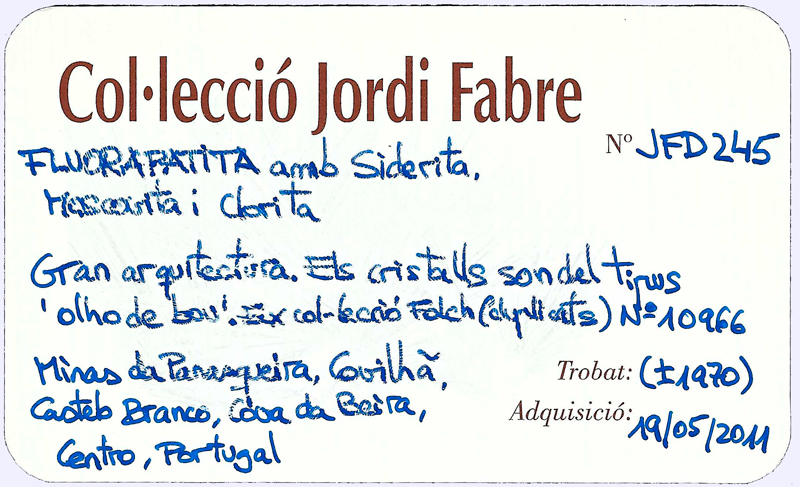 Col·lecció Jordi Fabre
Nº JFD245
FLUORAPATITA amb Siderita,
Moscovita i Clorita
Gran arquitectura. Els cristalls son del tipus
'olho de boi'. Ex col·lecció Folch (duplicats) Nº 10966
Minas da Panasqueira, Covilhã,
Trobat: (±1970)
Castelo Branco, Cova da Beira,
Adquisició: 19/05/2011
Centro, Portugal